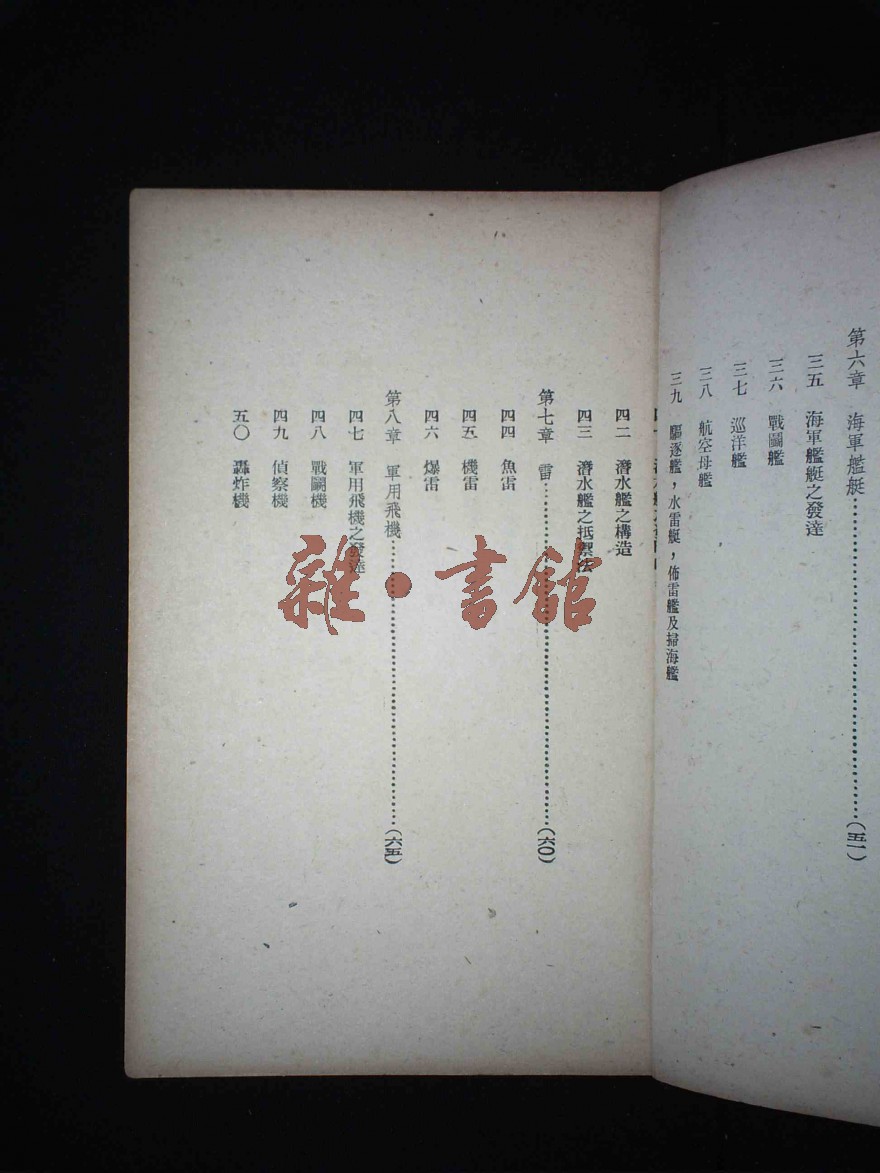 第六章　海軍艦艇……………………（五一）
三五　海軍艦艇之發達
三六　戰鬭艦
三七　巡洋艦
三八　航空母艦
三九　驅逐艦，水雷艇，佈雷艦及掃海艦
四二　潛水艦之構造
四三　潛水艦之抵禦法
第七章　雷……………………（六〇）
四四　魚雷
四五　機雷
四六　爆雷
第八章　軍用飛機……………………（六五）
四七　軍用飛機之發達
四八　戰鬭機
四九　偵察機
五〇　轟炸機
雜·書館